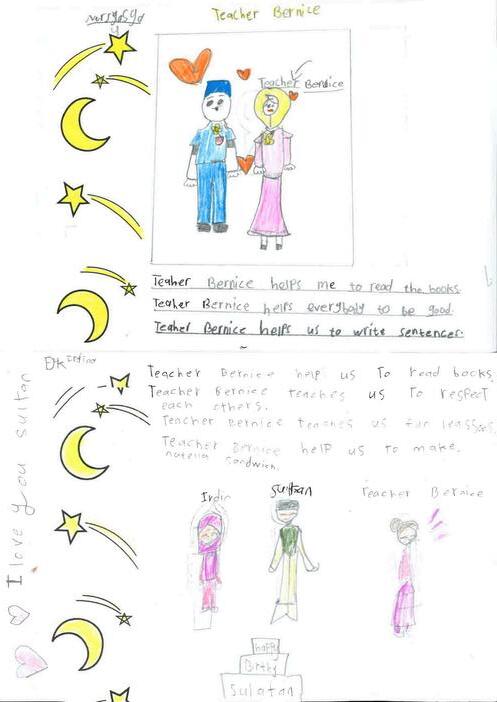 Teacher Bernice
Teacher Bernice
Teaher Bernice helps me to read the books.
Teaher Bernice helps everybody to be good.
Teaher Bernice helps us to write sentences.
Teacher Bernice help us To read books
Teacher Bernice teaches us To respect
each others.
Teacher Bernice teaches us fun
Teacher Bernice help us to make.
nutella sandwich.
I love you sultan
Teacher Bernice
happy
Sulatan